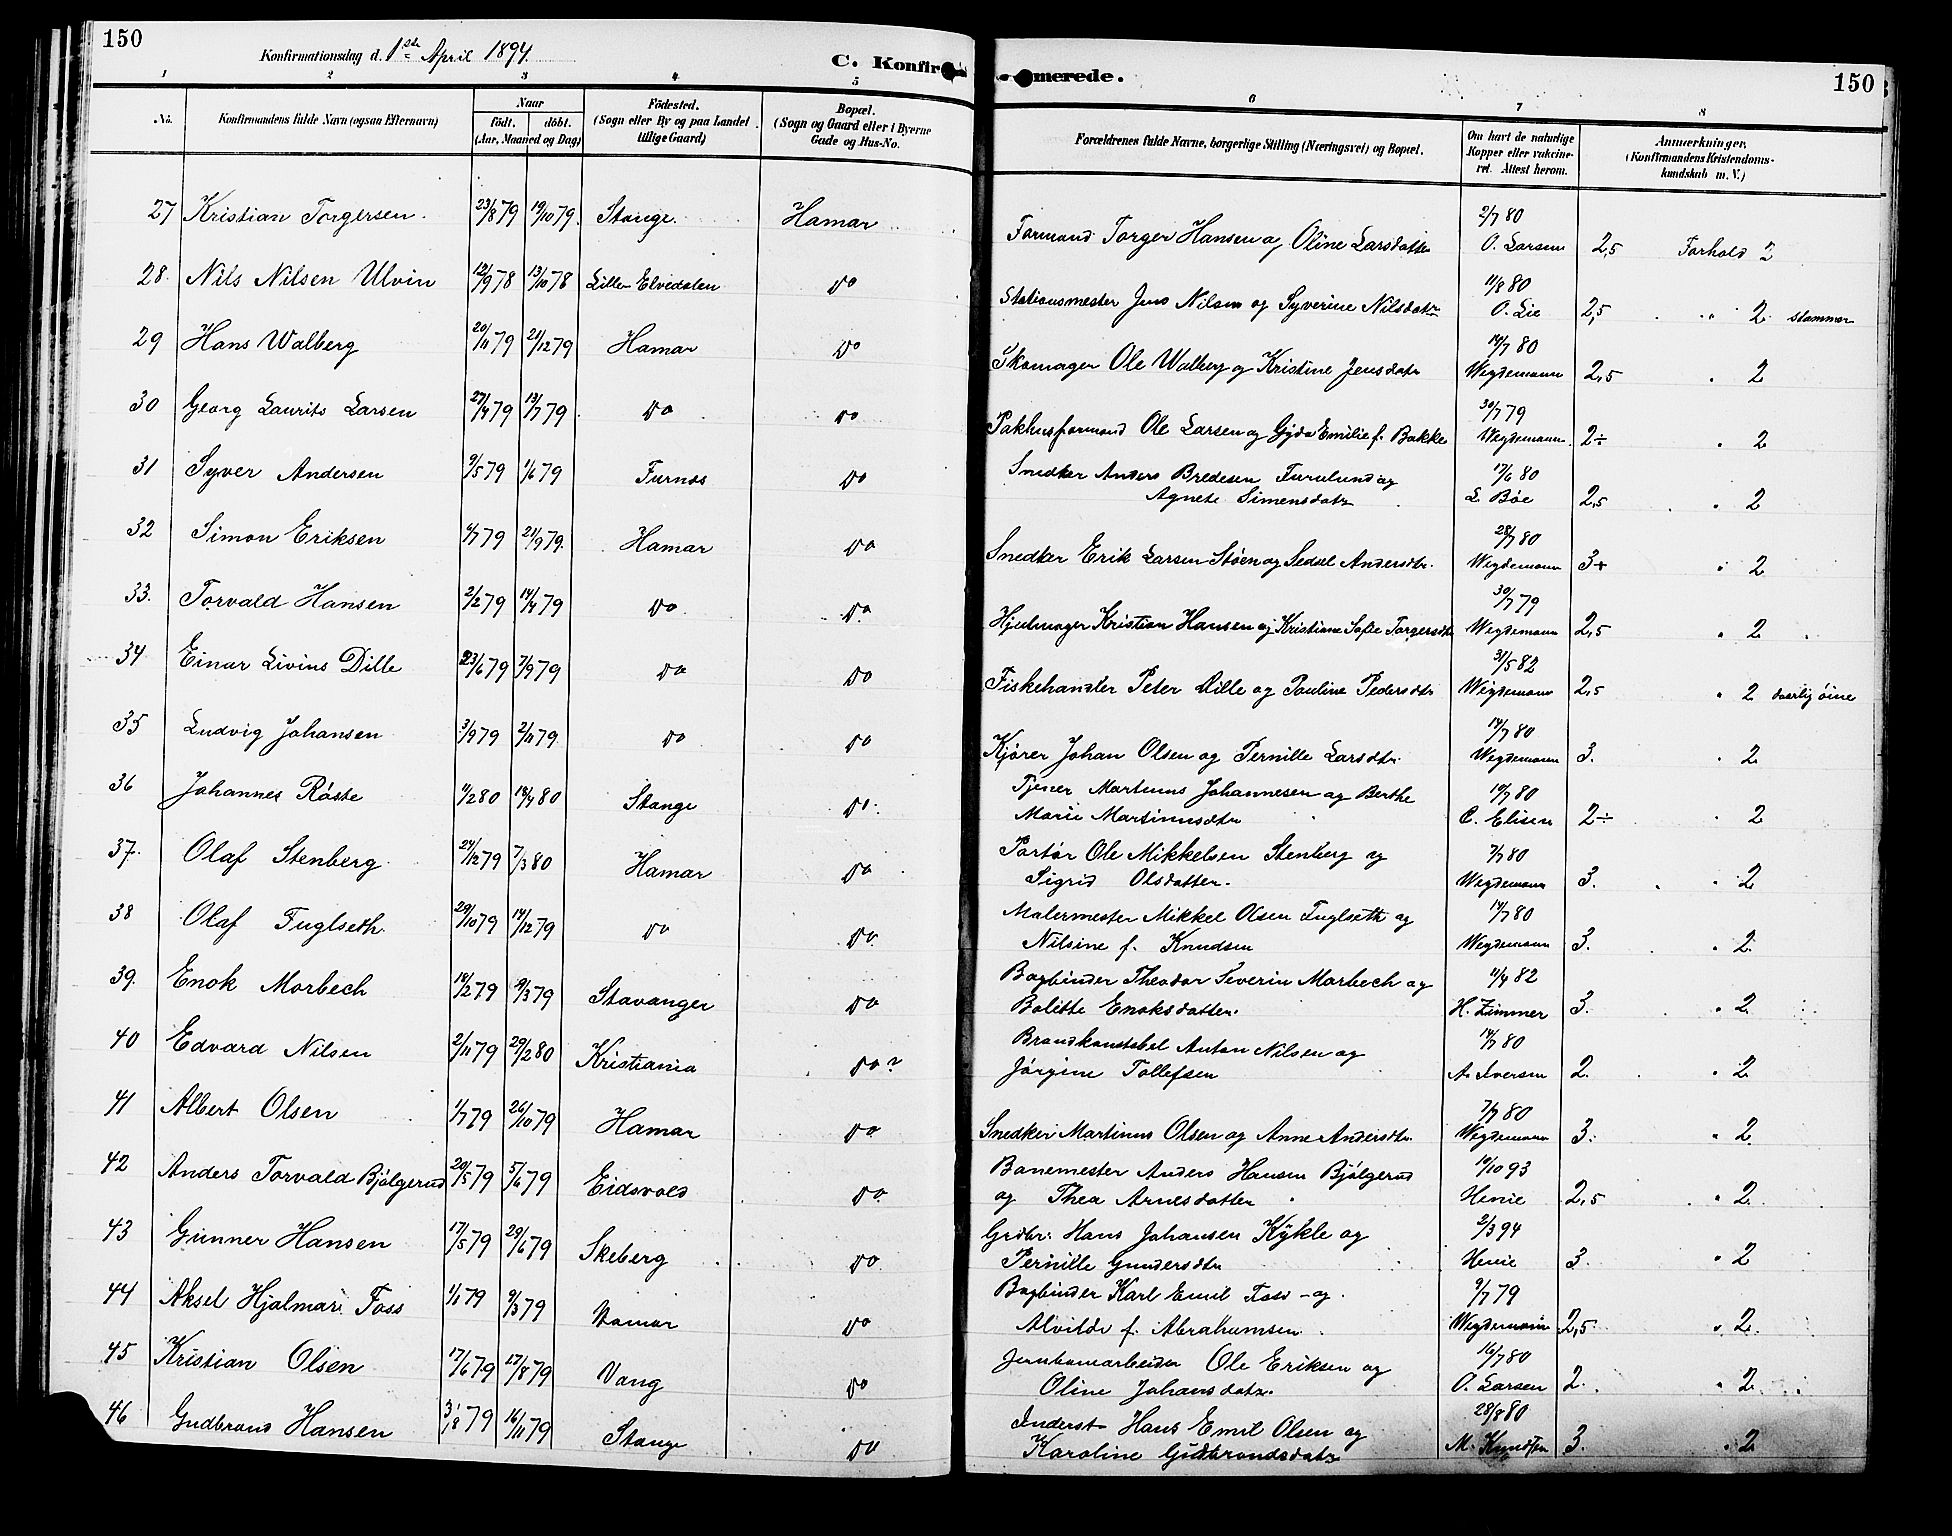 150
Konfirmationsdag d. 1ste April 1894.
C. Konfirmerede.
150
1 2 3 4 5 6 7 8
No. Konfirmandens fulde Navn (ogsaa Efternavn) Naar födt. döbt. (Aar, Maaned og Dag) Födested. (Sogn eller By og paa Landet tillige Gaard) Bopæl. (Sogn og Gaard eller i Byerne Gade og Hus-No. Forældrenes fulde Navne, borgerlige Stilling (Næringsvei) og Bopæl. Om havt de naturlige Kopper eller vakcineret. Attest herom. Anmærkninger. (Konfirmandens Kristendomskundskab m. V.)
27 Kristian Torgersen. 23/8 79 19/10 79. Stange. Hamar Formand Torger Hansen og Oline Larsdatter 2/7 80 O. Larsen 2,5 Forhold 2
28. Nils Nilsen Ulvin 12/9 78 13/10 78 Lille-Elvedalen Do Stationsmester Jens Nilsen og Syverine Nilsdatr 11/8 80 O. Lie 2,5 " 2 stammer
29 Hans Walberg 20/11 79 21/12 79 Hamar Do Skomager Ole Walberg og Kristine Jensdatr 14/7 80 Wegdemann 2,5 " 2
30 Georg Laurits Larsen 27/4 79 13/7 79 Do Do Pakhusformand Ole Larsen og Gyda Emilie f. Bakke 30/7 79 Wegdemann. 2÷ " 2
31 Syver Andersen 9/5 79 1/6 79 Furnes Do Snedker Anders Bredesen Furulund og Agnete Simensdatr 17/6 80 L. Bøe 2,5 " 2
32 Simon Eriksen 4/7 79 21/9 79. Hamar Do Snedker Erik Larsen Støen og Sedsel Andersdtr. 28/7 80 Wegdemann 3+ " 2
33. Torvald Hansen 2/2 79 14/4 79 Do Do. Hjulmager Kristian Hansen og Kristiane Sofie Torgersdtr 30/7 79 Wegdemann 2,5 " 2
34 Einar Livius Dille 23/6 79 7/9 79 Do Do Fiskehandler Peter Dille og Pauline Pedersdtr 31/5 82 Wegdemann 2,5 " 2 daarlig øine
35 Ludvig Johansen 3/9 79 2/11 79 Do Do Kjører Johan Olsen og Pernille Larsdtr. 14/7 80 Wegdemann 3. " 2
36 Johannes Røste 11/2 80 18/4 80 Stange Do. Tjener Martinus Johannesen og Berthe Marie Martinusdtr 19/7 80 C. Elisen 2÷ " 2
37. Olaf Stenberg 24/12 79 7/3 80 Hamar Do Portør Ole Mikkelsen Stenberg og Sigrid Olsdatter. 7/7 80 Wegdemann 3. " 2
38 Olaf Fuglseth. 29/10 79 14/12 79 Do Do Malermester Mikkel Olsen Fuglseth og Nilsine f. Knudsen 14/7 80 Wegdemann 3. " 2.
39. Enok Morbech 18/2 79 19/3 79 Stavanger Do Bogbinder Theodor Severin Morbech og Bolette Enoksdatter. 11/4 82 H. Zimmer 3. " 2
40 Edvard Nilsen 2/11 79 29/2 80 Kristiania Do? Brandkonstabel Anton Nilsen og Jørgine Tollefsen 14/7 80 A. Iversen 2. " 2
41 Albert Olsen 1/7 79 26/10 79 Hamar Do Snedker Martinus Olsen og Anne Andersdtr. 7/7 80 Wegdemann 3. " 2
42 Anders Torvald Bjølgerud 20/5 79 5/6 79 Eidsvold Do Banemester Anders Hansen Bjølgerud og Thea Arnesdatter 10/10 93 Henie 2,5 " 2
43 Gunner Hansen 17/5 79 29/6 79 Skeberg Do Grdbr. Hans Johansen Kykle og Pernille Gundersdtr 2/3 94 Henie 3. " 2
44 Aksel Hjalmar Foss 1/1 79 9/3 79 Hamar Do Bogbinder Karl Emil Foss og Alvilde f. Abrahamsen 9/7 79 Wegdemann 2,5 " 2
45 Kristian Olsen 17/6 79 17/8 79 Vang Do Jernbanearbeider Ole Eriksen og Oline Johansdatr. 16/7 80 O. Larsen 2. " 2
46 Gudbrand Hansen 31/8 79 16/11 79 Stange Do Inderst Hans Emil Olsen og Karoline Gudbrandsdatr 28/8 80 M. Knudsen 3. " 2